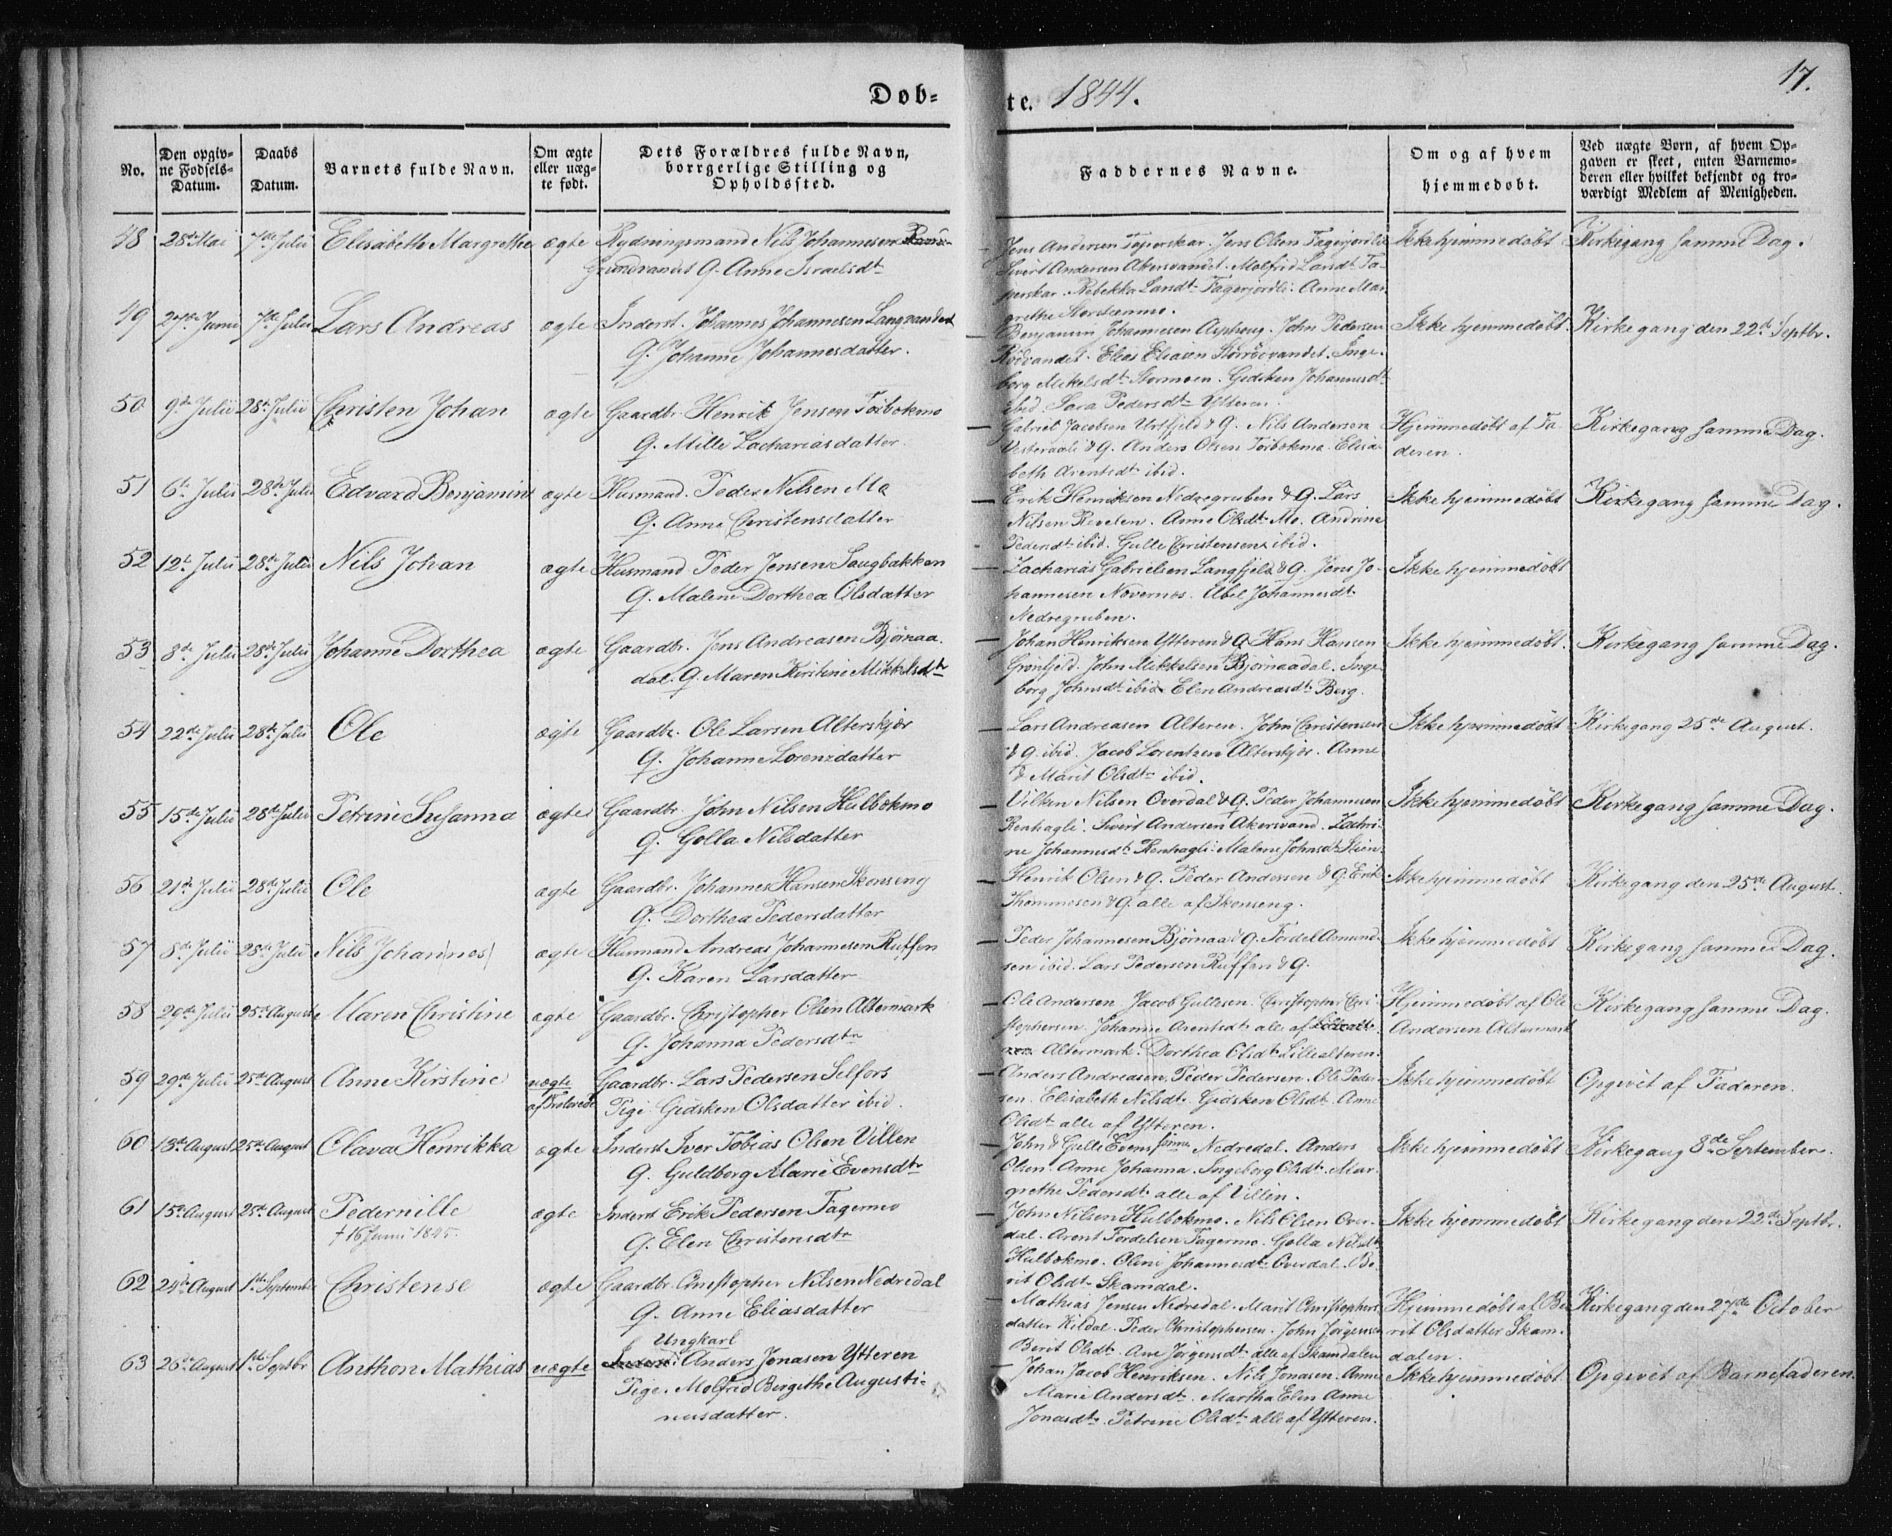 17.
Dob-
te. 1844.
No.
Den opgiv-
ne Fødsels-
Datum.
Daabs
Datum.
Barnets fulde Navn.
Om ægte
eller uæg-
te født.
Dets Forældres fulde Navn,
borgerlige Stilling og
Opholdssted.
Faddernes Navne.
Om og af hvem
hjemmedøbt.
Ved uægte Børn, af hvem Op-
gaven er skeet, enten Barnemo-
deren eller hvilket bekjendt og tro-
værdigt Medlem af Menigheden.
48 28de Mai 7de Julii Elisabeth Margrethe ægte Rydningsmand Nils Johannesen
Grundvandet G. Anne Israelsdt
Jens Andersen Tøperskar. Jens Olsen Fagerjordli
Sivert Andersen Akersvandet. Molfrid Larsdt Ta-
perskar. Rebekka Larsdt Fagerjordli. Anne Mar-
grethe
Ikke hjemmedøbt Kirkegang samme Dag.
49 27de Junii 7de Julii Lars Andreas ægte Inderst. Johannes Johannesen Langvandet
G. Johanne Johannesdatter.
Benjamin Johannesen John Pedersen
Rødvandet. Elias Eliasen Inge-
borg Mikelsdt Stormoen. Gidsken Johannesdt
ibid. Sara Pedersdt Ytteren.
Ikke hjemmedøbt. Kirkegang den 22de Septbr.
50 9de Julii 28de Julii Christen Johan ægte Gaardbr. Henrik Jensen Toibokmo
G. Mille Zachariasdatter.
Gabriel Jacobsen Urtfjeld & G. Nils Andersen
Vesteraali & G. Anders Olsen Toibokmo. Elisa-
beth Arentsdt ibid.
Hjemmedøbt af Fa-
deren.
Kirkegang samme Dag.
51 6te Julii 28de Julii Edvard Benjamin ægte Husmand. Peder Nilsen Mo
G. Anne Christensdatter
Erik Henriksen Nedregruben & G. Lars
Nilsen Revelen. Anne Olsdt Mo. Andrine
Pedersdt ibid. Gulle Christensen ibid.
Ikke hjemmedøbt Kirkegang samme Dag.
52 12te Julii 28de Julii Nils Johan ægte Husmand Peder Jensen Saugbakken
G. Malene Dorthea Olsdatter
Zacharias Gabrielsen Langfjeld & G. Jens Jo-
hannesen Novernes. Abel Johannesdt
Nedregruben.
Ikke hjemmedøbt
53 8de Julii 28de Julii Johanne Dorthea ægte Gaardbr. Jens Andreasen Bjørnaa-
dal. G. Maren Kirstine Mikkelsdt
Johan Henriksen Ytteren & G. Hans Hansen
Grønfjeld. John Mikkelsen Bjørnaadal. Inge-
borg Johnsdt ibid. Elen Andreasdt Berg.
Ikke hjemmedøbt. Kirkegang samme Dag.
54 22de Julii 28de Julii Ole ægte Gaardbr. Ole Larsen Alterskjær
G. Johanne Lorenzdatter
Lars Andreasen Alteren. John Christensen
& G. ibid. Jacob Lorentsen Alterskjær. Anne
& Marit Olsdt ibid.
Ikke hjemmedøbt Kirkegang 25de August.
55 15de Julii 28de Julii Petrine Susanna ægte Gaardbr. John Nilsen Hulbokmo
G. Golla Nilsdatter
Vilken Nilsen Overdal & G. Peder Johannesen
Renhagli. Sivert Andersen Akersvand. Zachri-
ne Johannesdt Renhagli. Malene Johnsdt
Ikke hjemmedøbt Kirkegang samme Dag.
56 21de Julii 28de Julii Ole ægte Gaardbr. Johannes Hansen Skonseng
G. Dorthea Pedersdatter
Henrik Olsen & G. Peder Andersen & G. Erik
Thommesen & G. alle af Skonseng.
Ikke hjemmedøbt Kirkegang den 25de August.
57 8de Julii 28de Julii Nils Johannes ægte Husmand Andreas Johannesen Ruffen
G. Karen Larsdatter
Peder Johannesen Bjørnaa & G. Tordel Amund-
sen ibid. Lars Pedersen Ruffen & G.
Ikke hjemmedøbt Kirkegang samme Dag.
58 20de Julii 25de August Maren Christine ægte Gaardbr. Christopher Olsen Altermark
G. Johanna Pedersdtr
Ole Andersen Jacob Gullesen. Christopher Chri-
stophersen. Johanne Arentsdt alle af
Altermark. Dorthea Olsdt Lillealteren.
Hjemmedøbt af Ole
Andersen Altermark
Kirkegang samme Dag.
59 29de Julii 25de August Anne Kirstine uægte
Gaardbr. Lars Pedersen Selfors
Pige Gidsken Olsdatter ibid.
Anders Andreasen, Peder Pedersen. Ole Peder-
sen. Elisabeth Nilsdt. Gidsken Olsdt. Anne
Olsdt alle af Ytteren.
Ikke hjemmedøbt Opgivet af Faderen.
60 13de August 25de August Olava Henrikka ægte Inderst Iver Tobias Olsen Villen
G. Guldborg Marie Evensdtr
John & Gulle Evens Nedredal. Anders
Olsen. Anne Johanna. Ingeborg Olsdt. Mar-
grethe Pedersdt alle af Villen.
Ikke hjemmedøbt Kirkegang 8de September.
61 15de August 25de August Pedernille
† 16 Junii 1845.
ægte Inderst Erik Pedersen Fagermo
G. Elen Christensdtr
John Nilsen Hulbokmo. Nils Olsen Over-
dal. Arent Tordelsen Fagermo. Golla Nilsdt
Hulbokmo. Oline Johannesdt Overdal. Be-
rit Olsdt Skamdal.
Ikke hjemmedøbt Kirkegang den 22de Septbr.
62 24de August 1ste September Christense ægte Gaardbr. Christopher Nilsen Nedredal
G. Anne Eliasdatter
Mathias Jensen Nedredal. Marit Christophers-
datter Kildal. Peder Christophersen. John Jørgensen
Berit Olsdt. Ane Jørgensdt alle af Skamdalen
Hjemmedøbt af Be-
rit Olsdatter Skam-
dalen.
Kirkegang den 27de October
63 26de August 1ste Septbr Anthon Mathias uægte
Ungkarl
Anders Jonasen Ytteren
Pige. Molfrid Bergithe Augusti-
nusdatter.
Johan Jacob Henriksen. Nils Jonasen. Anne
Marie Andersdt. Martha Elen Anne
Jonasdt. Petrine Olsdt alle af Ytteren.
Ikke hjemmedøbt Opgivet af Barnefaderen.